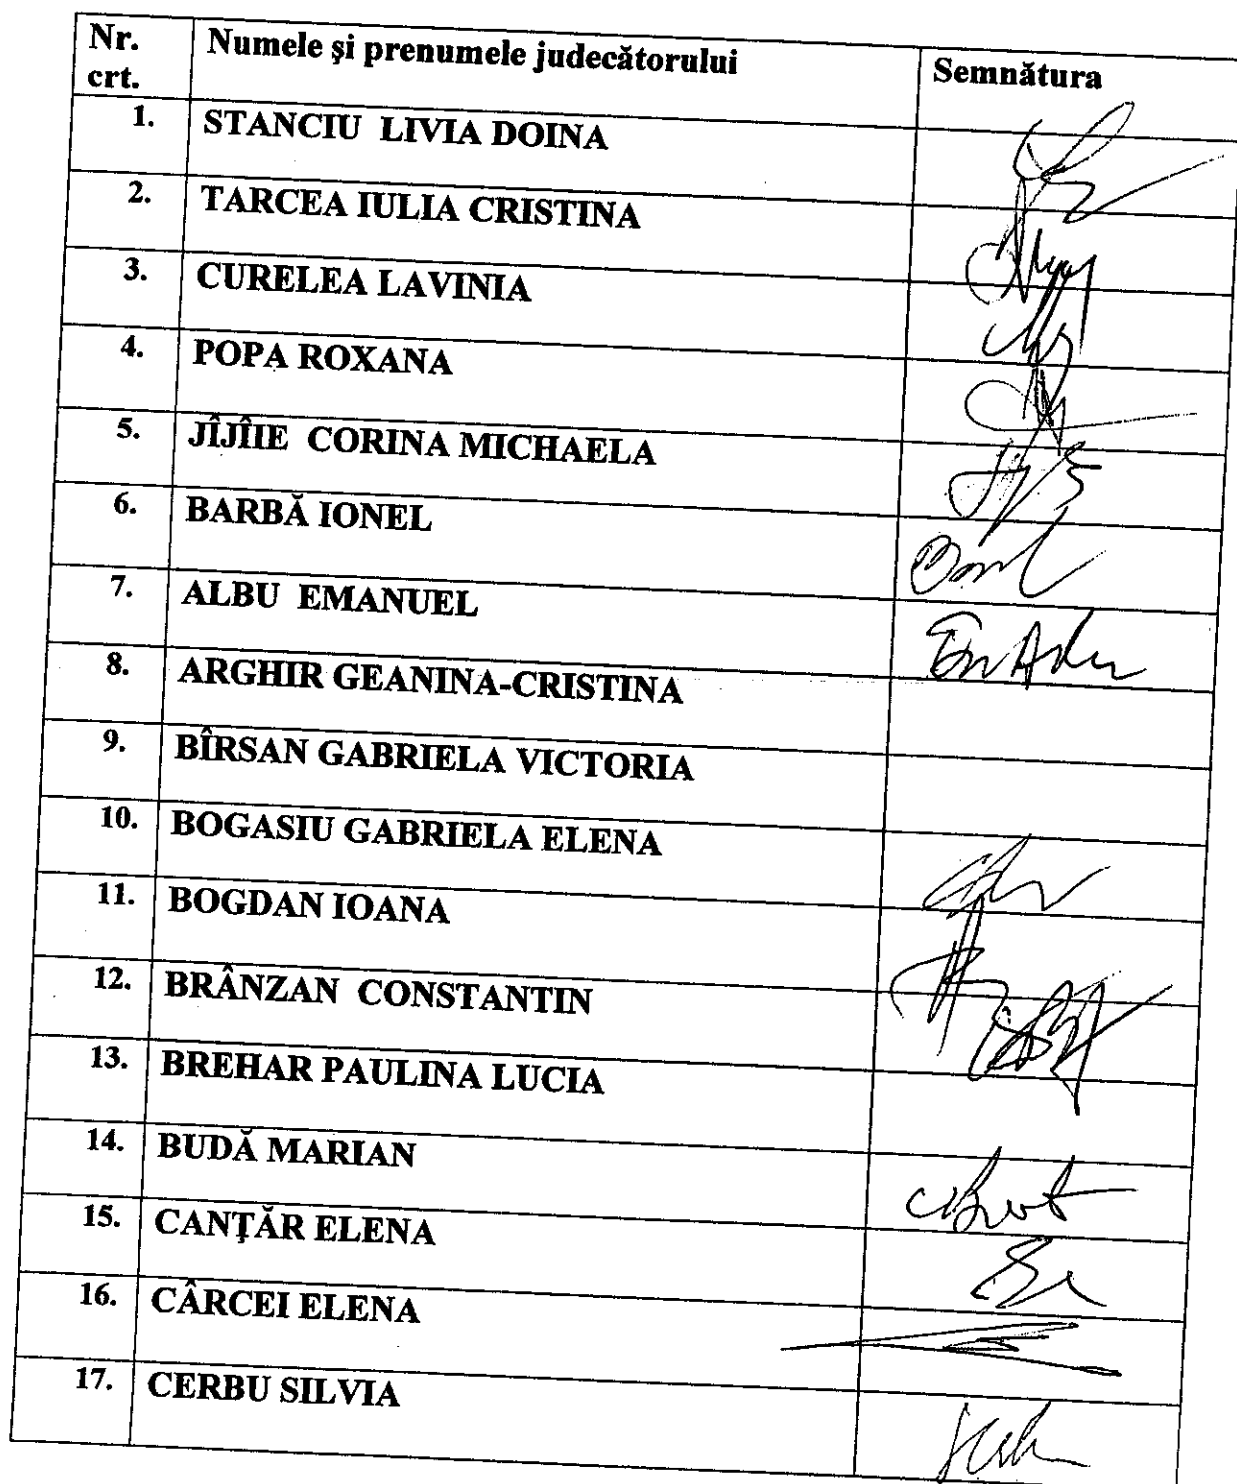 Nr. crt. Numele și prenumele judecătorului Semnătura
1. STANCIU LIVIA DOINA
2. TARCEA IULIA CRISTINA
3. CURELEA LAVINIA
4. POPA ROXANA
5. JÎJÎIE CORINA MICHAELA
6. BARBĂ IONEL
7. ALBU EMANUEL
8. ARGHIR GEANINA-CRISTINA
9. BÎRSAN GABRIELA VICTORIA
10. BOGASIU GABRIELA ELENA
11. BOGDAN IOANA
12. BRÂNZAN CONSTANTIN
13. BREHAR PAULINA LUCIA
14. BUDĂ MARIAN
15. CANŢĂR ELENA
16. CÂRCEI ELENA
17. CERBU SILVIA